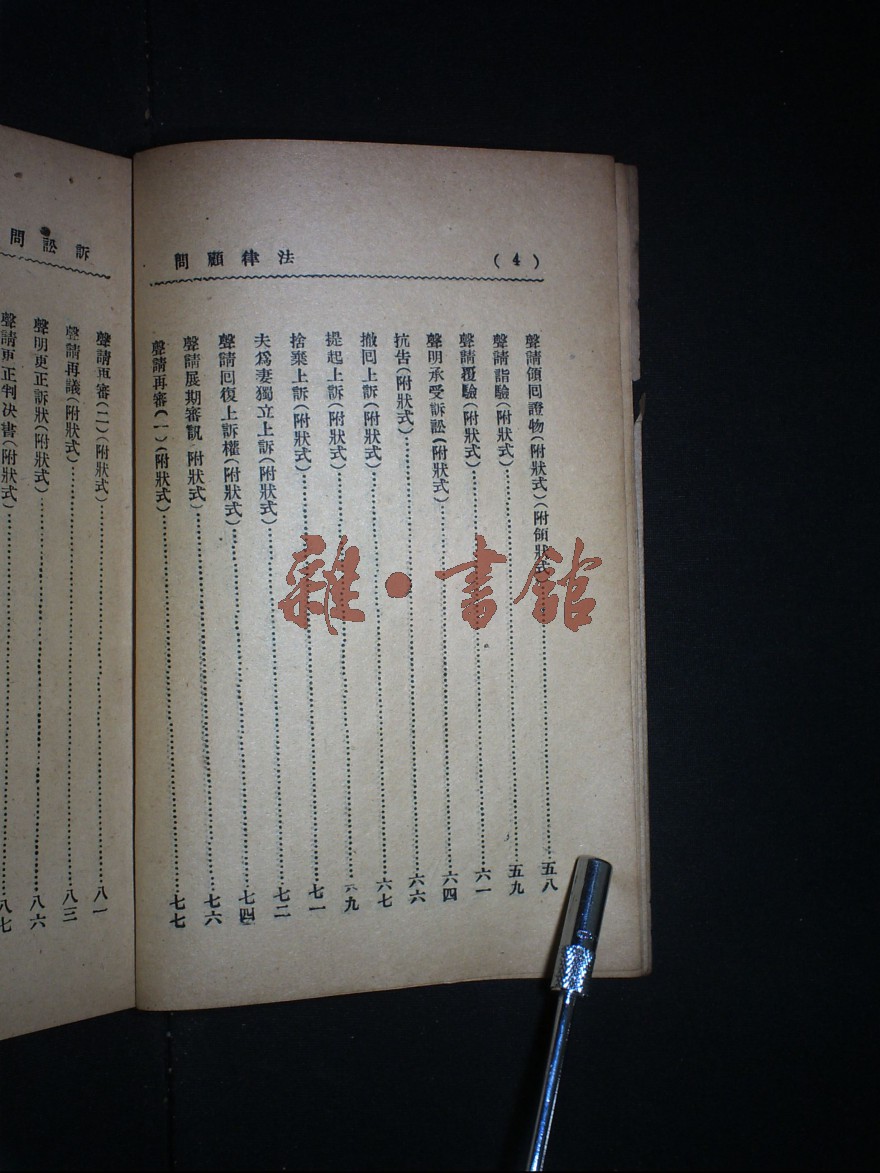 (4)
法律顧問
聲請領回證物(附狀式)(附領狀式)……五八
聲請詣驗(附狀式)……五九
聲請覆驗(附狀式)……六一
聲明承受訴訟(附狀式)……六四
抗告(附狀式)……六六
撤回上訴(附狀式)……六七
提起上訴(附狀式)……六九
捨棄上訴(附狀式)……七一
夫爲妻獨立上訴(附狀式)……七二
聲請回復上訴權(附狀式)……七四
聲請展期審訊(附狀式)……七六
聲請再審(一)(附狀式)……七七
訴訟問
聲請再審(二)(附狀式)……八一
聲請再議(附狀式)……八三
聲明更正訴狀(附狀式)……八六
聲請更正判決書(附狀式)……八七
雜·書館